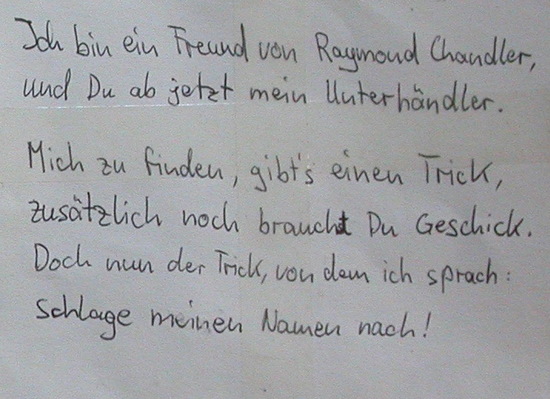 Ich bin ein Freund von Raymond Chandler,
und Du ab jetzt mein Unterhändler.
Mich zu finden, gibt's einen Trick,
zusätzlich noch braucht Du Geschick.
Doch nun der Trick, von dem ich sprach:
Schlage meinen Namen nach!